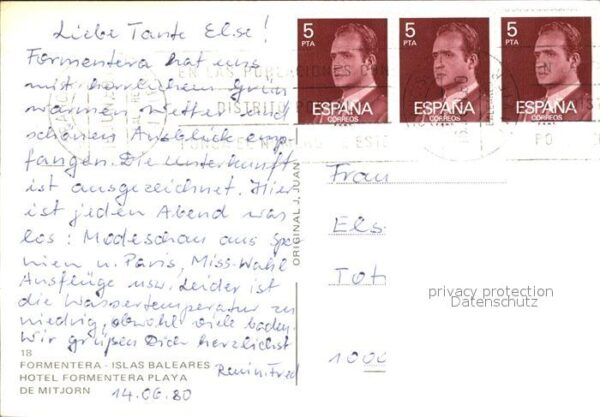 Liebe Tante Else!
Formentera hat uns
mit herrlichem Grün
warmen Wetter und
schönen Ausblick emp-
fangen. Die Unterkunft
ist ausgezeichnet. Hier
ist jeden Abend was
los: Modeschau aus Spa-
nien u. Paris, Miss-Wahl
Ausflüge usw. Leider ist
die Wassertemperatur zu
niedrig, obwohl viele baden.
Wir grüßen Dich herzlichst
14.06.80
18
FORMENTERA - ISLAS BALEARES
HOTEL FORMENTERA PLAYA
DE MITJORN
ORIGINAL J. JUAN
5
PTA
ESPAÑA
CORREOS
5
PTA
ESPAÑA
CORREOS
5
PTA
ESPAÑA
CORREOS
EN LAS POBLACIONES CON
DISTRI
Frau
Els
Tot
1000
privacy protection
Datenschutz